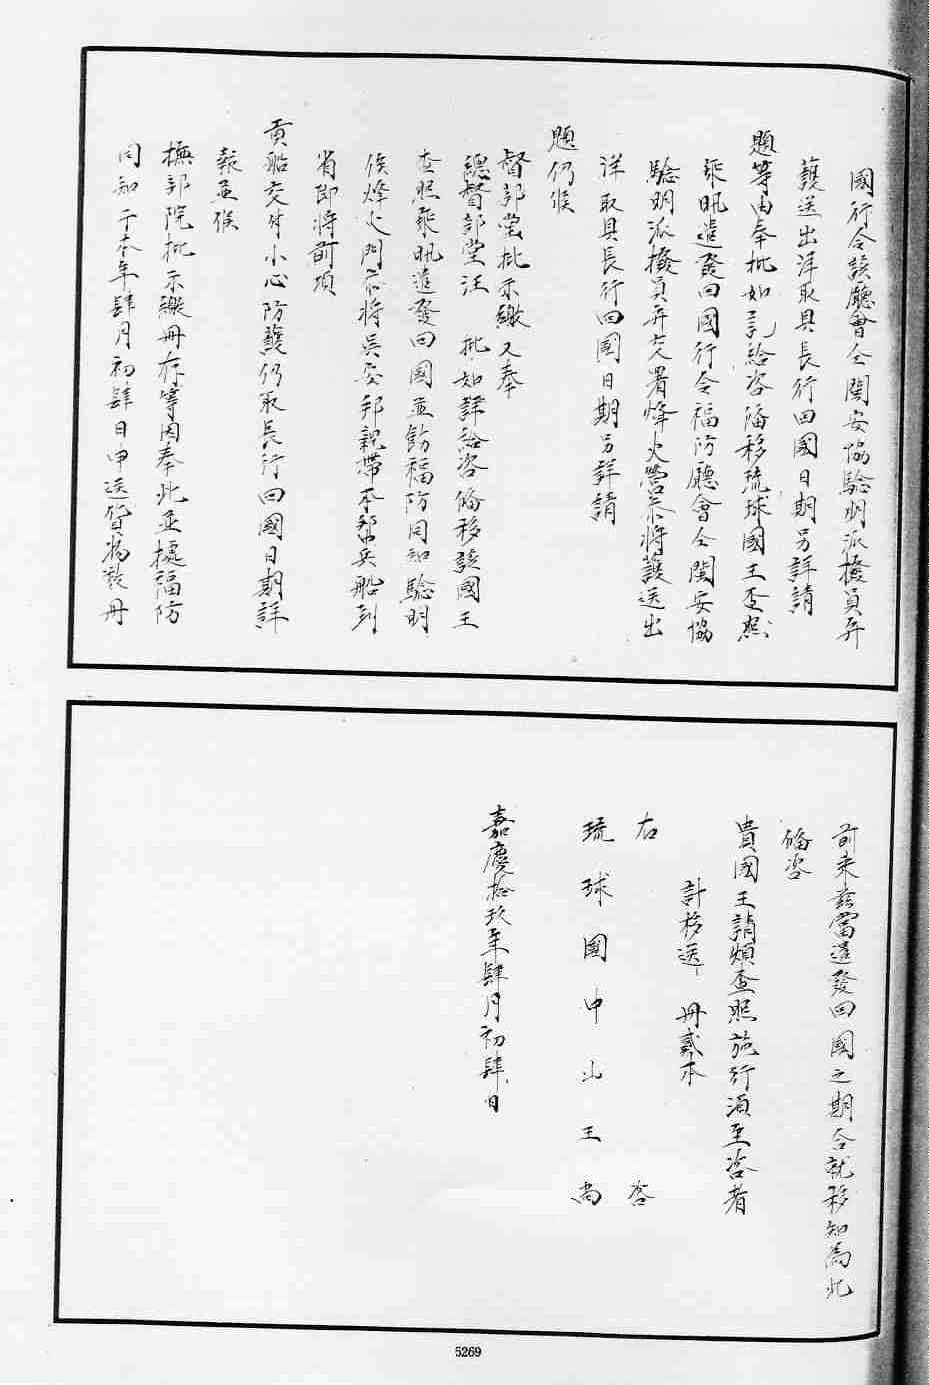 國行令該廳會仝閩安協驗明派撥員弁
護送出洋取具長行回國日期另詳請
題等由奉批如詳給咨俻移琉球國王查照
乘汛遣發回國行令福防廳會仝閩安協
驗明派撥員弁交署烽火營叅將護送出
洋取具長行回國日期另詳請
題仍候
督部堂批示繳又奉
總督部堂汪 批如詳給咨俻移該國王
查照乘汛遣發回國並飭福防同知驗明
候烽火門叅將吳安邦親帶本幫兵船到
省即將前項
貢船交付小心防護仍取長行回國日期詳
報並候
撫部院批示繳冊存等因奉此並據福防
同知于本年肆月初肆日申送貨物裝冊
前来玆當遣發回國之期合就移知為此
俻咨
貴國王請煩查照施行須至咨者
計移送 冊貳本
右 咨
琉球國中山王尚
嘉慶拾玖年肆月初肆日
5269